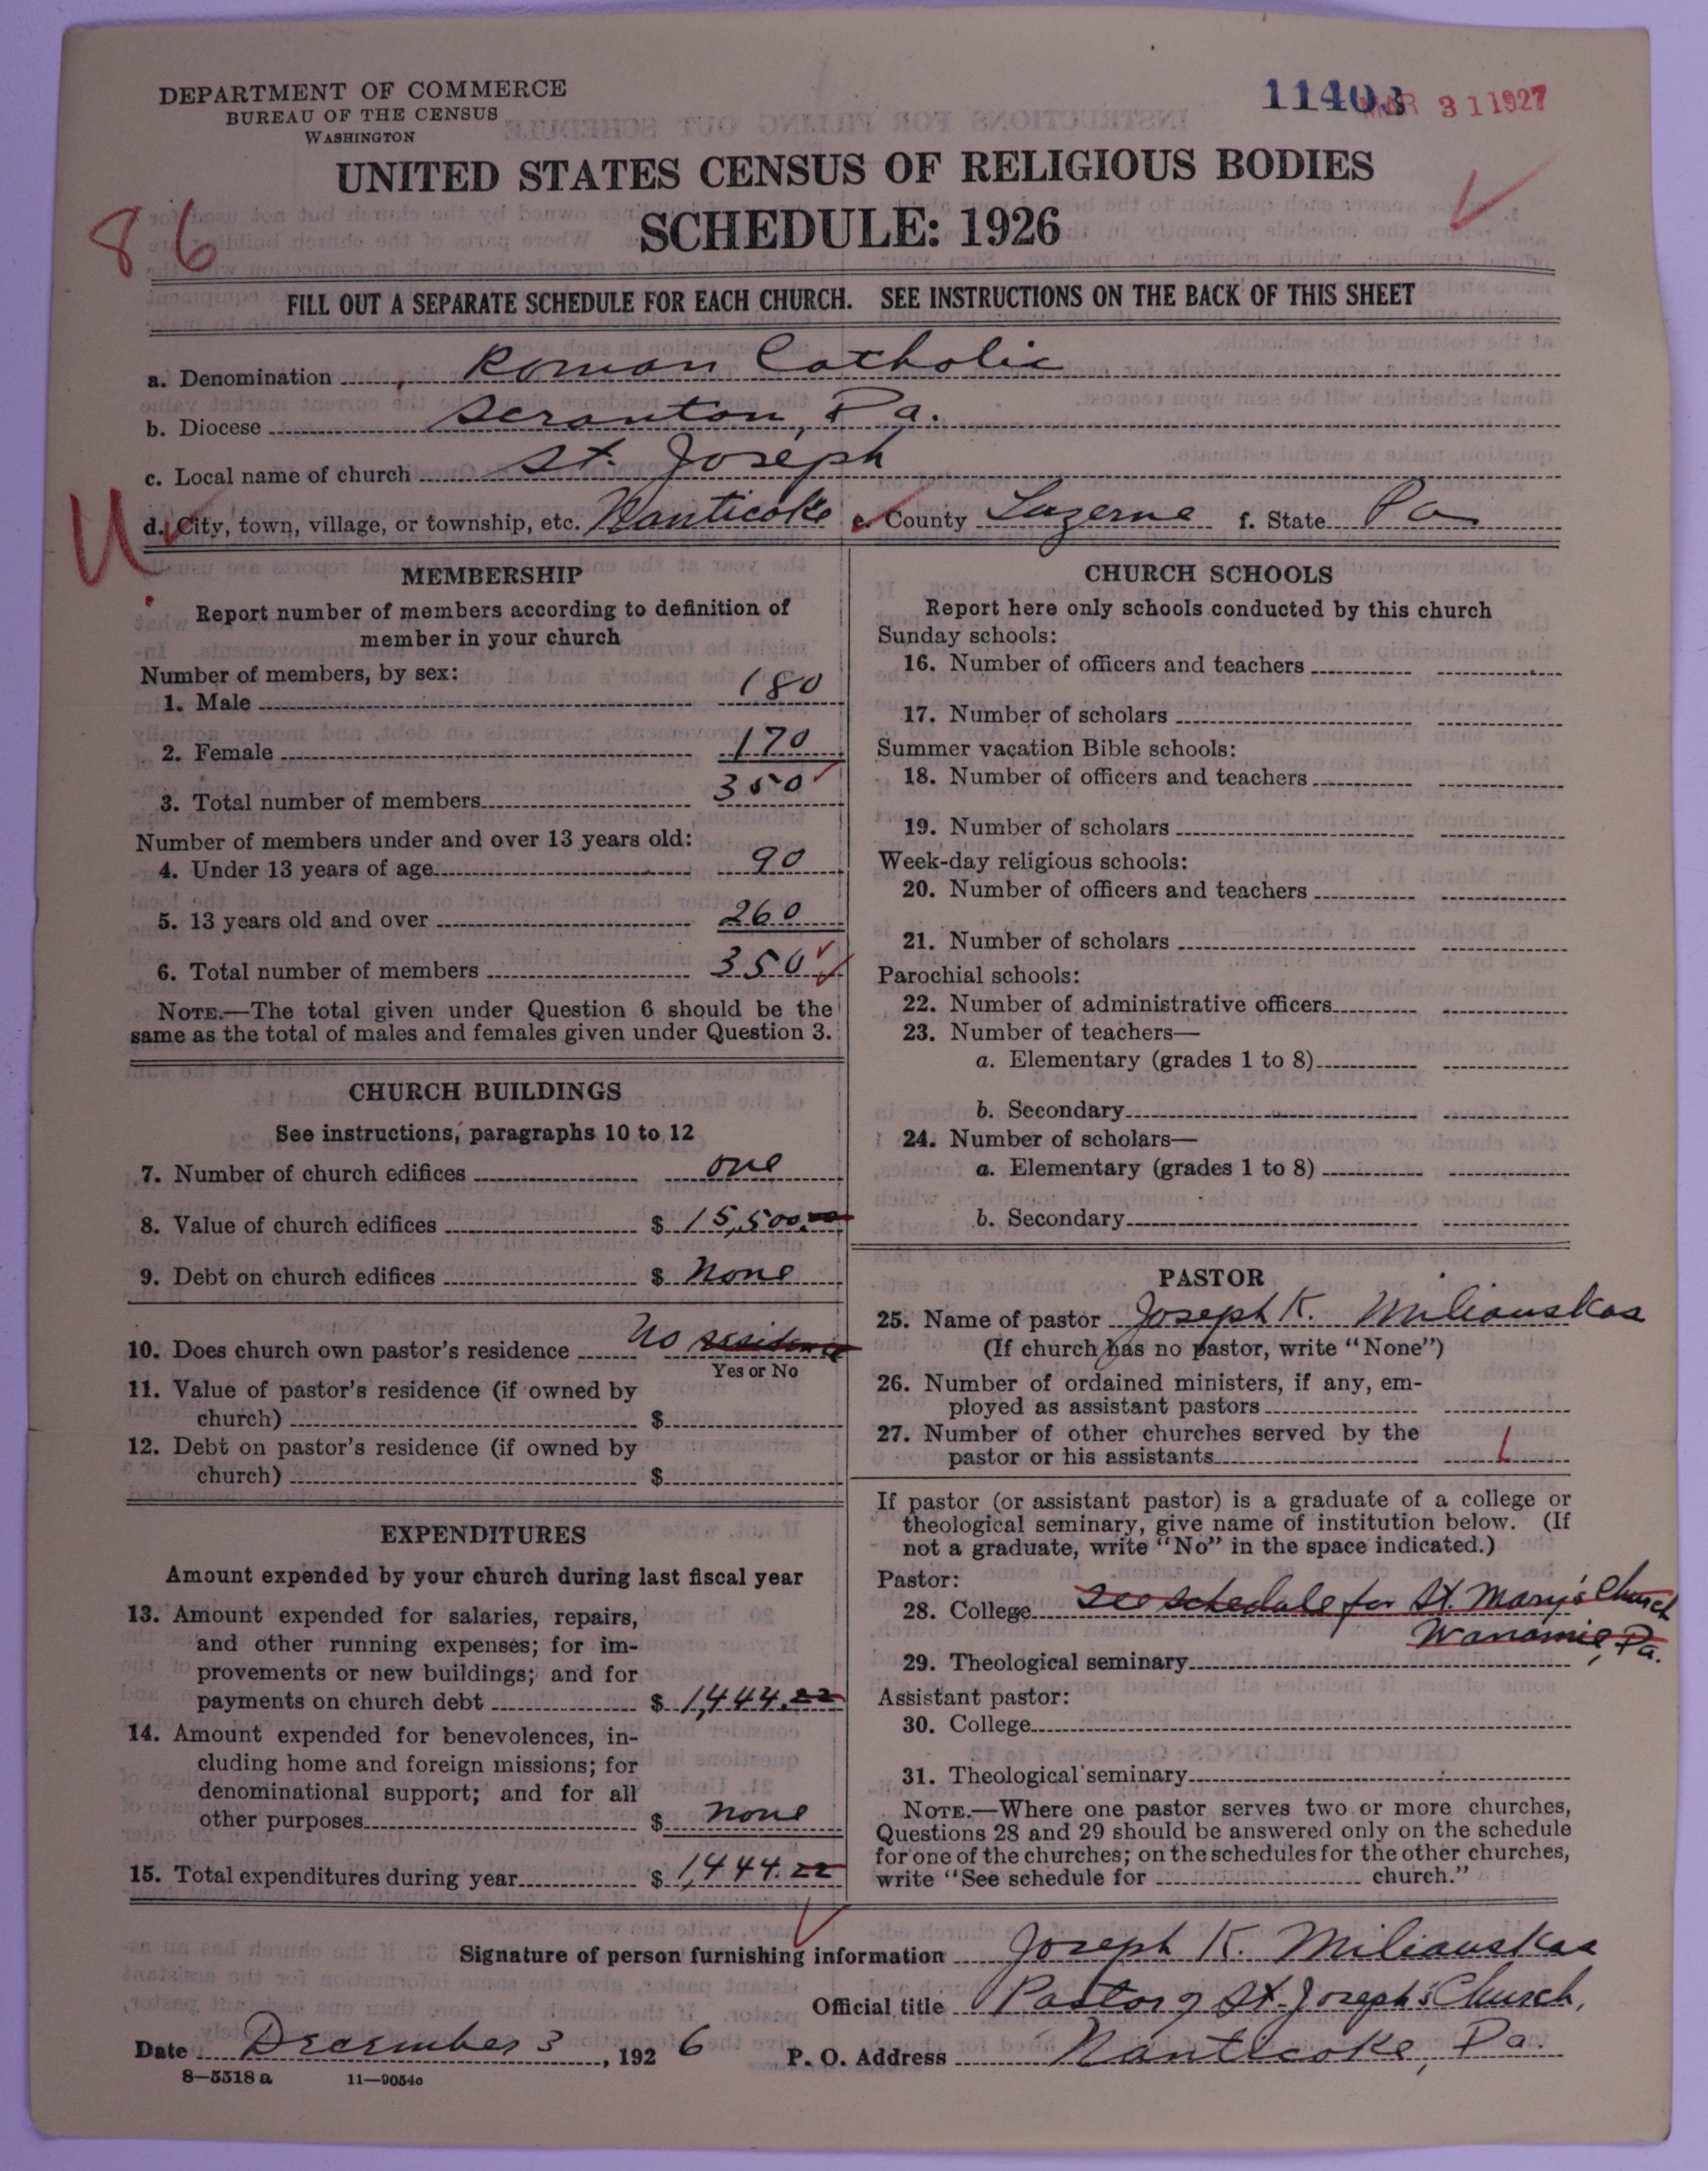 DEPARTMENT OF COMMERCE
BUREAU OF THE CENSUS
WASHINGTON
11403 MAR 31 1927
UNITED STATES CENSUS OF RELIGIOUS BODIES
SCHEDULE: 1926
86
FILL OUT A SEPARATE SCHEDULE FOR EACH CHURCH. SEE INSTRUCTIONS ON THE BACK OF THIS SHEET
a. Denomination Roman Catholic
b. Diocese Scranton, Pa.
c. Local name of church St. Joseph
U
d. City, town, village, or township, etc. Nanticoke e. County Luzerne f. State Pa
MEMBERSHIP
Report number of members according to definition of
member in your church
Number of members, by sex:
1. Male 180
2. Female 170
3. Total number of members 350
Number of members under and over 13 years old:
4. Under 13 years of age 90
5. 13 years old and over 260
6. Total number of members 350
NOTE.—The total given under Question 6 should be the
same as the total of males and females given under Question 3.
CHURCH BUILDINGS
See instructions, paragraphs 10 to 12
7. Number of church edifices one
8. Value of church edifices $ 15,500.00
9. Debt on church edifices $ None
10. Does church own pastor's residence No residence
Yes or No
11. Value of pastor's residence (if owned by
church) $
12. Debt on pastor's residence (if owned by
church) $
EXPENDITURES
Amount expended by your church during last fiscal year
13. Amount expended for salaries, repairs,
and other running expenses; for im-
provements or new buildings; and for
payments on church debt $ 1,444.22
14. Amount expended for benevolences, in-
cluding home and foreign missions; for
denominational support; and for all
other purposes $ none
15. Total expenditures during year $ 1,444.22
CHURCH SCHOOLS
Report here only schools conducted by this church
Sunday schools:
16. Number of officers and teachers
17. Number of scholars
Summer vacation Bible schools:
18. Number of officers and teachers
19. Number of scholars
Week-day religious schools:
20. Number of officers and teachers
21. Number of scholars
Parochial schools:
22. Number of administrative officers
23. Number of teachers—
a. Elementary (grades 1 to 8)
b. Secondary
24. Number of scholars—
a. Elementary (grades 1 to 8)
b. Secondary
PASTOR
25. Name of pastor Joseph K. Miliauskas
(If church has no pastor, write "None")
26. Number of ordained ministers, if any, em-
ployed as assistant pastors
27. Number of other churches served by the
pastor or his assistants 1
If pastor (or assistant pastor) is a graduate of a college or
theological seminary, give name of institution below. (If
not a graduate, write "No" in the space indicated.)
Pastor:
28. College See schedule for St. Mary's Church
Wanamie, Pa.
29. Theological seminary
Assistant pastor:
30. College
31. Theological seminary
NOTE.—Where one pastor serves two or more churches,
Questions 28 and 29 should be answered only on the schedule
for one of the churches; on the schedules for the other churches,
write "See schedule for church."
Signature of person furnishing information Joseph K. Miliauskas
Official title Pastor of St. Joseph's Church,
Date December 3, 1926 P. O. Address Nanticoke, Pa.
8—5518 a 11—9054c